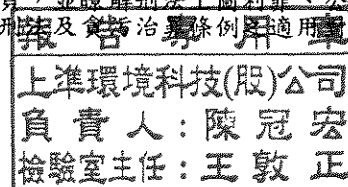 刑法及貪污治罪條例之適用
報告專用章
上準環境科技(股)公司
負責人:陳冠宏
檢驗室主任:王敦正